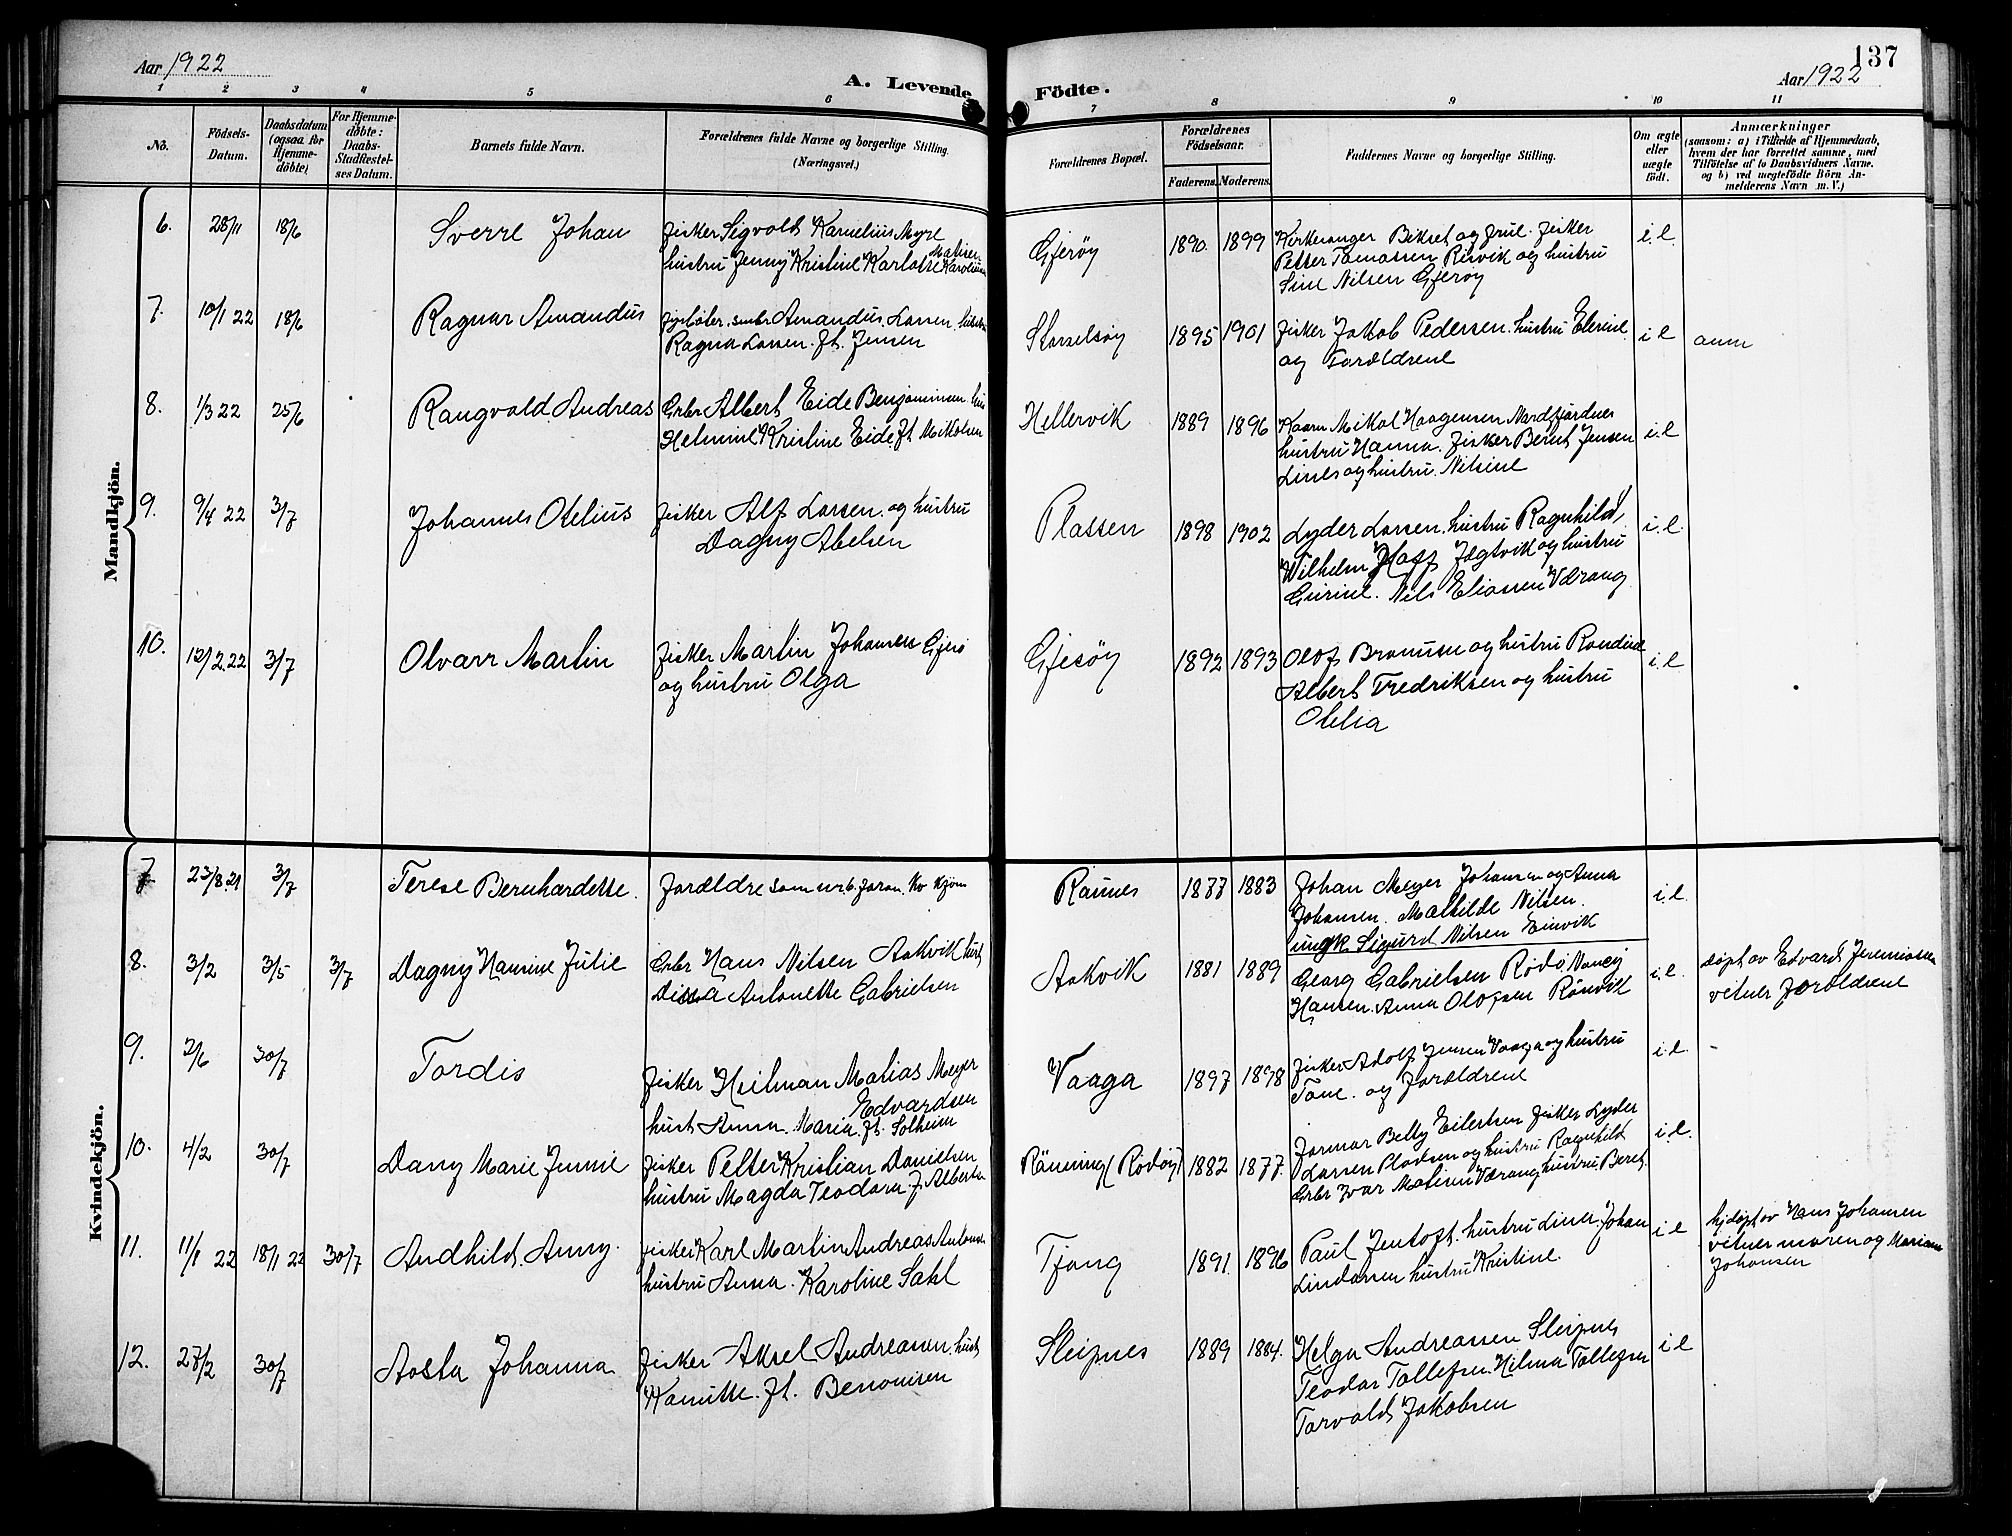 Aar 1922
A. Levende Födte.
137
Aar 1922
1 2 3 4 5 6 7 8 9 10 11
No.
Födsels-Datum.
Daabsdatum (ogsaa for Hjemme-døbte)
For Hjemme-døbte: Daabs-Stadfæstel-ses Datum.
Barnets fulde Navn.
Forældrenes fulde Navne og borgerlige Stilling. (Næringsvei.)
Forældrenes Bopæl.
Forældrenes Födselsaar.
Faderens.
Moderens.
Faddernes Navne og borgerlige Stilling.
Om ægte eller uægte født.
Anmærkninger
(saasom: a) i Tilfælde af Hjemmedaab, hvem der har forrettet samme, med Tilføielse af to Daabsvidners Navne. og b) ved uægtefødte Börn An-melderens Navn m. V.)
Mandkjön.
6. 28/11 18/6 Sverre Johan
fisker Sigvold Kornelius Myre
hustru Jenny Kristine Karlotte
Gjerøy 1890. 1899
Kirkesanger Bikset og frue. fisker
Petter Tomassen Resvik og hustru
Sine Nilsen Gjerøy
i.e.
7. 10/1 22 18/6 Ragnar Amandus
Amandus Larsen
Ragna Larsen. ft. Jensen
Storselsøy 1895 1901
fisker Jakob Pedersen. hustru Elerine
og Forældrene
i e anm
8. 1/3 22 25/6 Rangvald Andreas
Grbr Albert Eide Benjaminsen. hus
Helmine Kristine Eide ft Mikalsen
Hellervik 1889 1896
Kaarm Mikal Haagensen Nordfjordnes
hustru Hanna. fisker Bernt Jensen
Lines og hustru. Nilsine
i.e
9. 9/4 22 3/7 Johannes Otelius
fisker Alf Larsen. og hustru
Dagny Abelsen
Plassen 1898 1902
Lyder Larsen. hustru Ragnhild,
Wilhelm Hoff Jegtvik og hustru
Gurine. Nils Eliassen Værang
i.e.
10. 12/2 22 3/7 Olvarr Martin
fisker Martin Johansen Gjerø
og hustru Olga
Gjesøy 1892 1893
Olof Bronusen og hustru
Albert Fredriksen og hustru
Otelia
i.e
Kvindekjön.
7 23/8 21 3/7 Terese Bernhardette.
forældre som nr 6. foran. Kv kjøn
Raines 1877 1883
Johan Meyer Johansen og Anna
Johansen. Mathilde Nilsen.
ungk Sigurd Nilsen Einvik
i.e.
8. 3/2 3/5 3/7 Dagny Hansine Julie
Grbr Hans Nilsen Aakvik hust
Dissa Antonette Gabrielsen
Aakvik 1881 1889
Georg Gabrielsen Rødø. Nancy
Hansen. Anna Olofsen Rønvik
i.e.
døpt av Edvard Jeremiassen
vitner forældrene
9. 2/6 30/7 Tordis
fisker Hilman Matias Meyer
Edvardsen
hust Anna. Maria. ft. Solheim
Vaaga 1897 1898
fisker Adolf Jensen Vaaga og hustru
Tone. og forældrene
i.e.
10. 4/2 30/7 Dany Marie Jennie
fisker Petter Kristian Danielsen
hustru Magda Teodora
Rönning (Rodøy) 1882 1877.
Jormar Betty Eilertsen fisker Lyder
Larsen Pladsen og hustru Ragnhild
Grbr Ivar Matisen Værang hustru Beret
i.e.
11. 11/1 22 18/1 22 30/7 Audhild. Anny.
fisker Karl Martin Andreas Antonsen
hustru Anna. Karoline Sahl
Tjong 1891. 1896
Paul Jentoft. hustru Lina. Johan
Lindassen hustru Kristine.
i e
hjdøpt av Hans Johansen
vitner moren og
Johansen
12. 27/2 30/7 Aasta Johanna
fisker Aksel Andreasen. hust
Kamitte. ft. Benonisen
Sleipnes 1889 1884.
Helga Andreassen Sleipnes
Teodor Tollefsen. Hilma Tollefsen
Torvald Jakobsen
i e